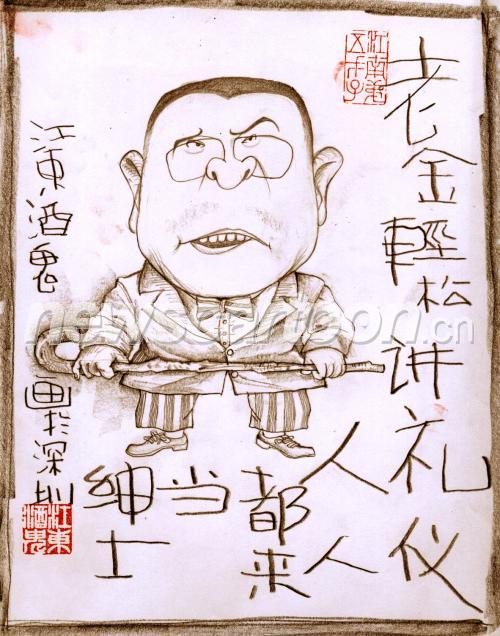 老金輕松讲礼仪
人人
都来
当
紳士
江東酒鬼
画於深圳
江東
酒鬼
newscartoon.cn